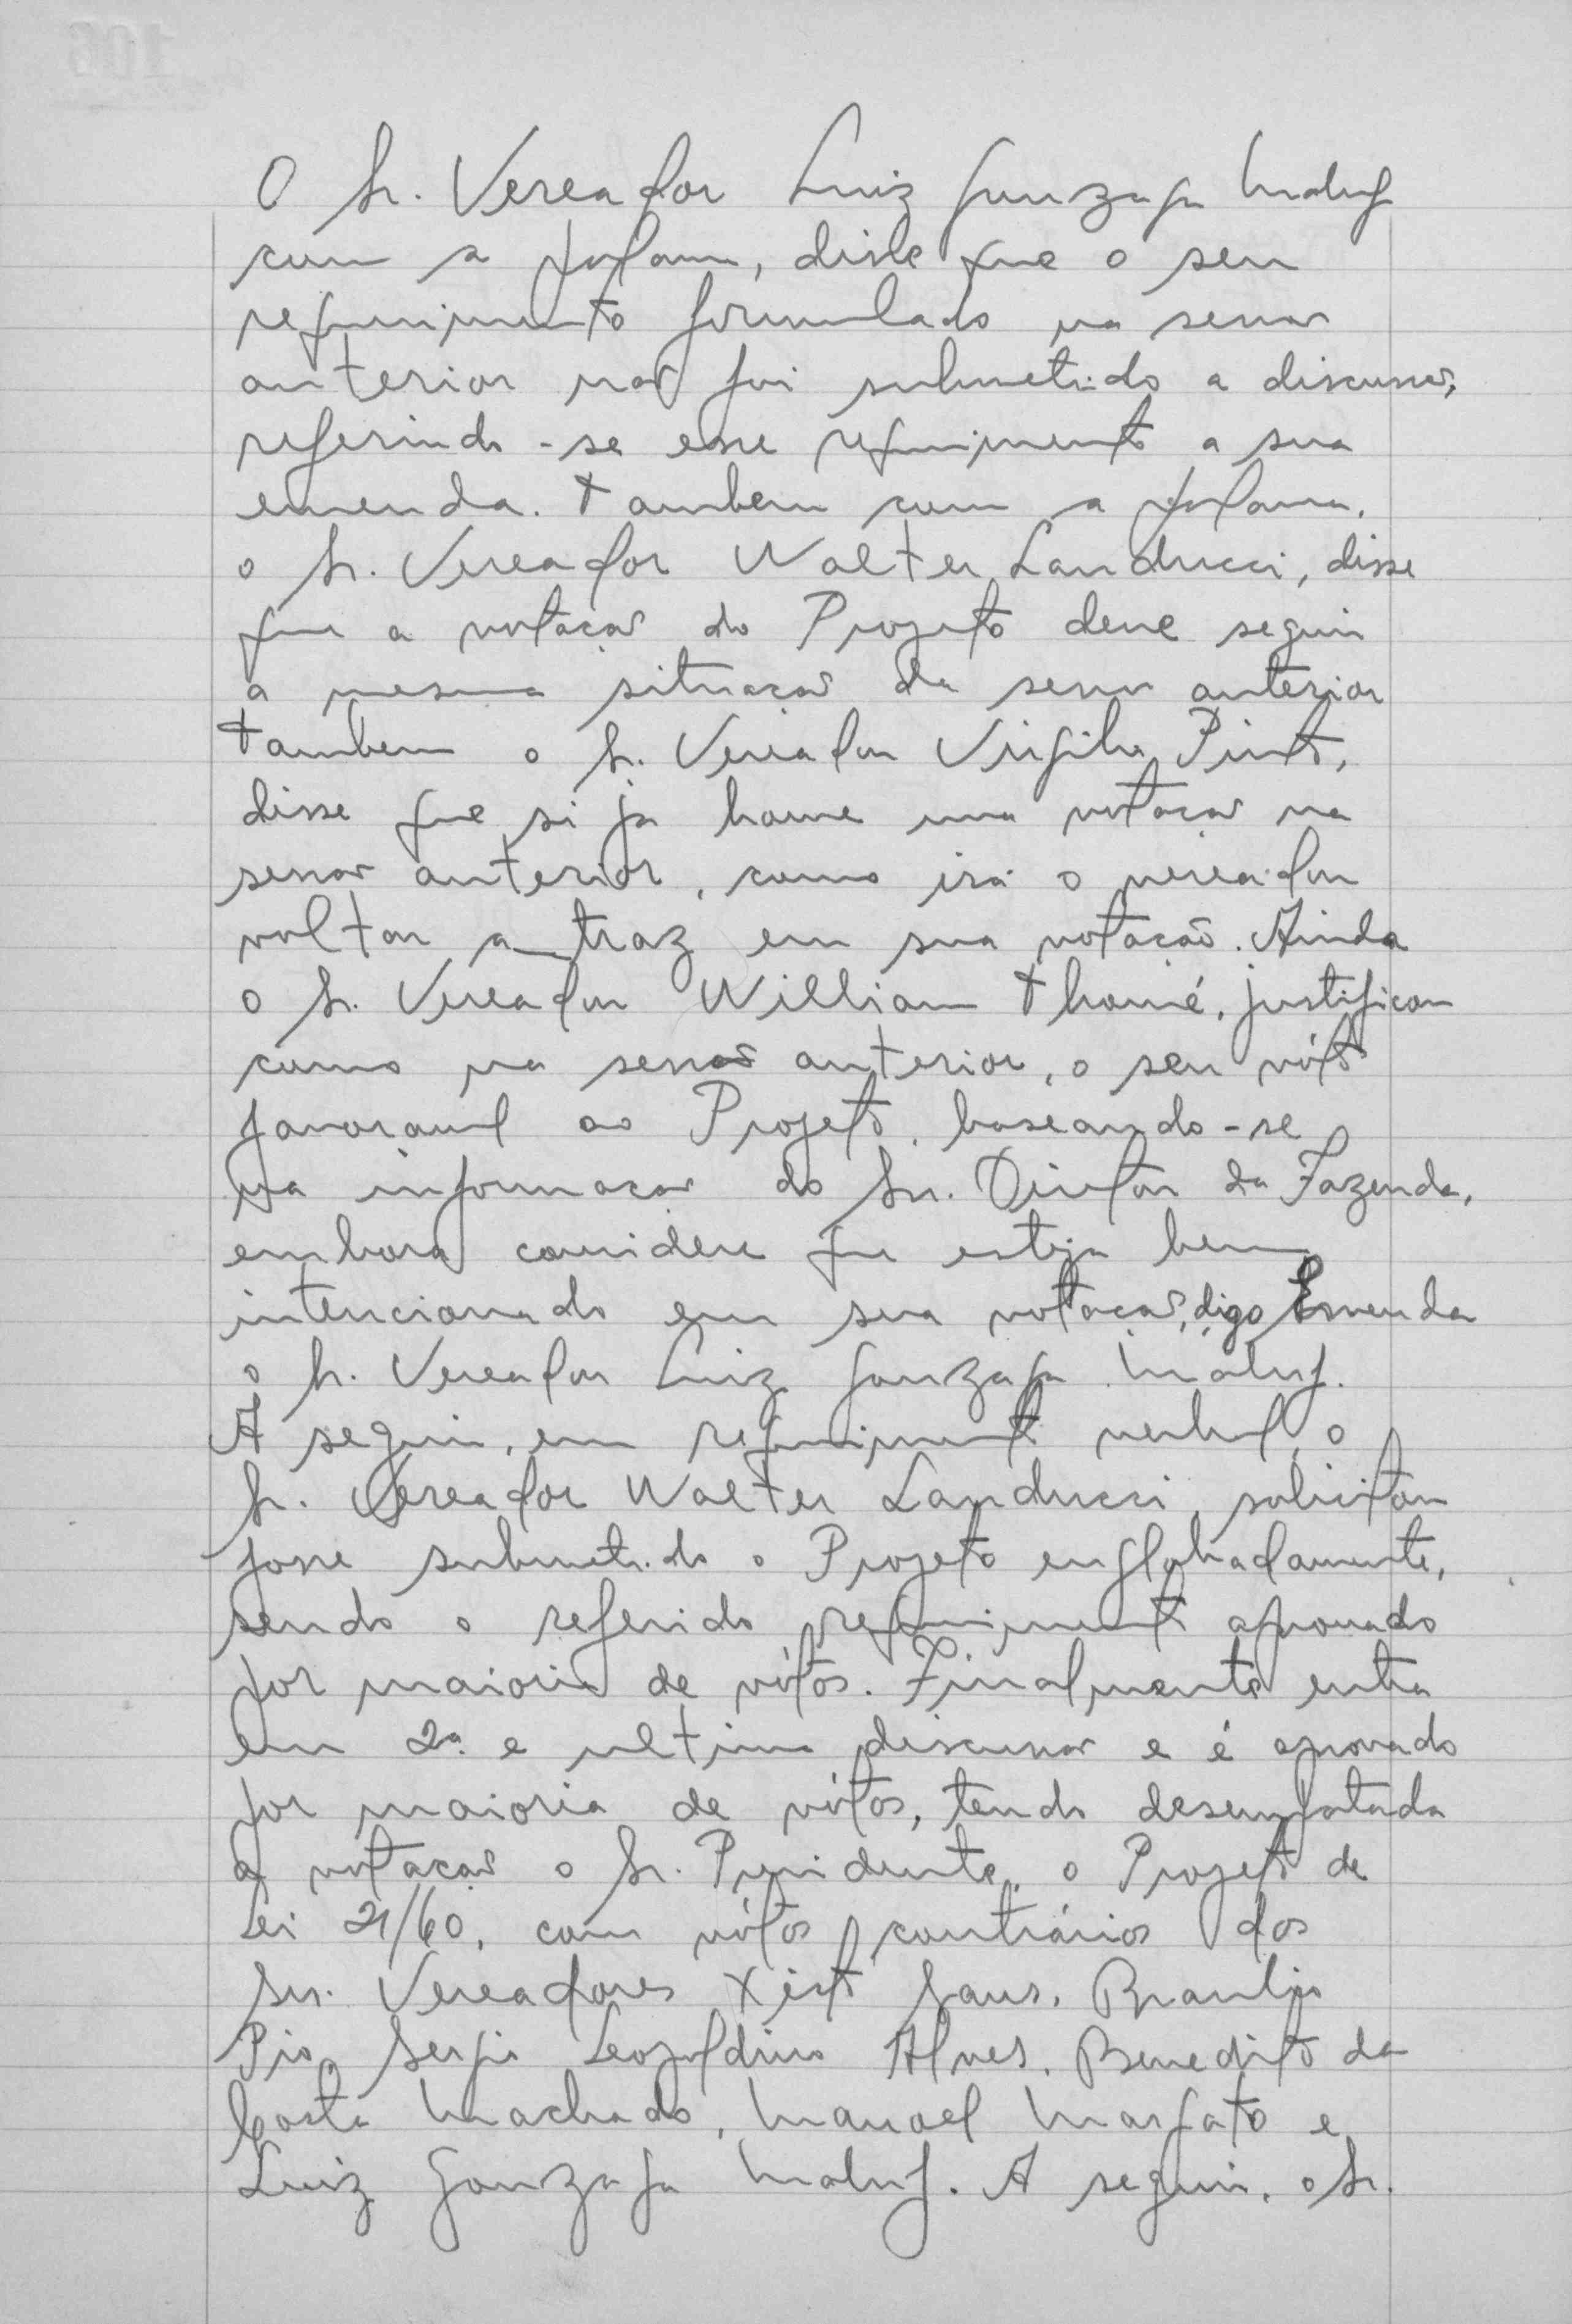 O Sr. Vereador Luiz Gonzaga Maluf
com a palavra, disse que o seu
requerimento formulado na sessão
anterior não foi submetido a discussão,
referindo-se esse requerimento a sua
emenda. Tambem com a palavra.
o Sr. Vereador Walter Landucci, disse
que a votação do Projeto deve seguir
a mesma situação da sessão anterior
Tambem o Sr. Vereador Virgilio Pinto,
disse que si ja houve uma votação na
sessão anterior, como irá o vereador
voltar a traz em sua votação. Ainda
o Sr. Vereador William Thomé, justificou
como na sessão anterior, o seu vóto
favoravel ao Projeto, baseando-se
na informação do Sr. Diretor da Fazenda,
embora considere que esteja bem
intencionado em sua votação, digo Emenda
o Sr. Vereador Luiz Gonzaga Maluf.
A seguir, em requerimento verbal, o
Sr. Vereador Walter Landucci, solicitou
fosse submetido o Projeto englobadamente,
sendo o referido requerimento aprovado
por maioria de vótos. Finalmente entra
em 2ª e ultima discussão e é aprovado
por maioria de vótos, tendo desempatada
a votação o Sr. Presidente, o Projeto de
Lei 21/60, com vótos contrários dos
Srs. Vereadores Xisto Braulio
Pio, Sergio Leopoldino Alves, Benedito da
Costa Machado, Manoel Margato e
Luiz Gonzaga Maluf. A seguir, o Sr.